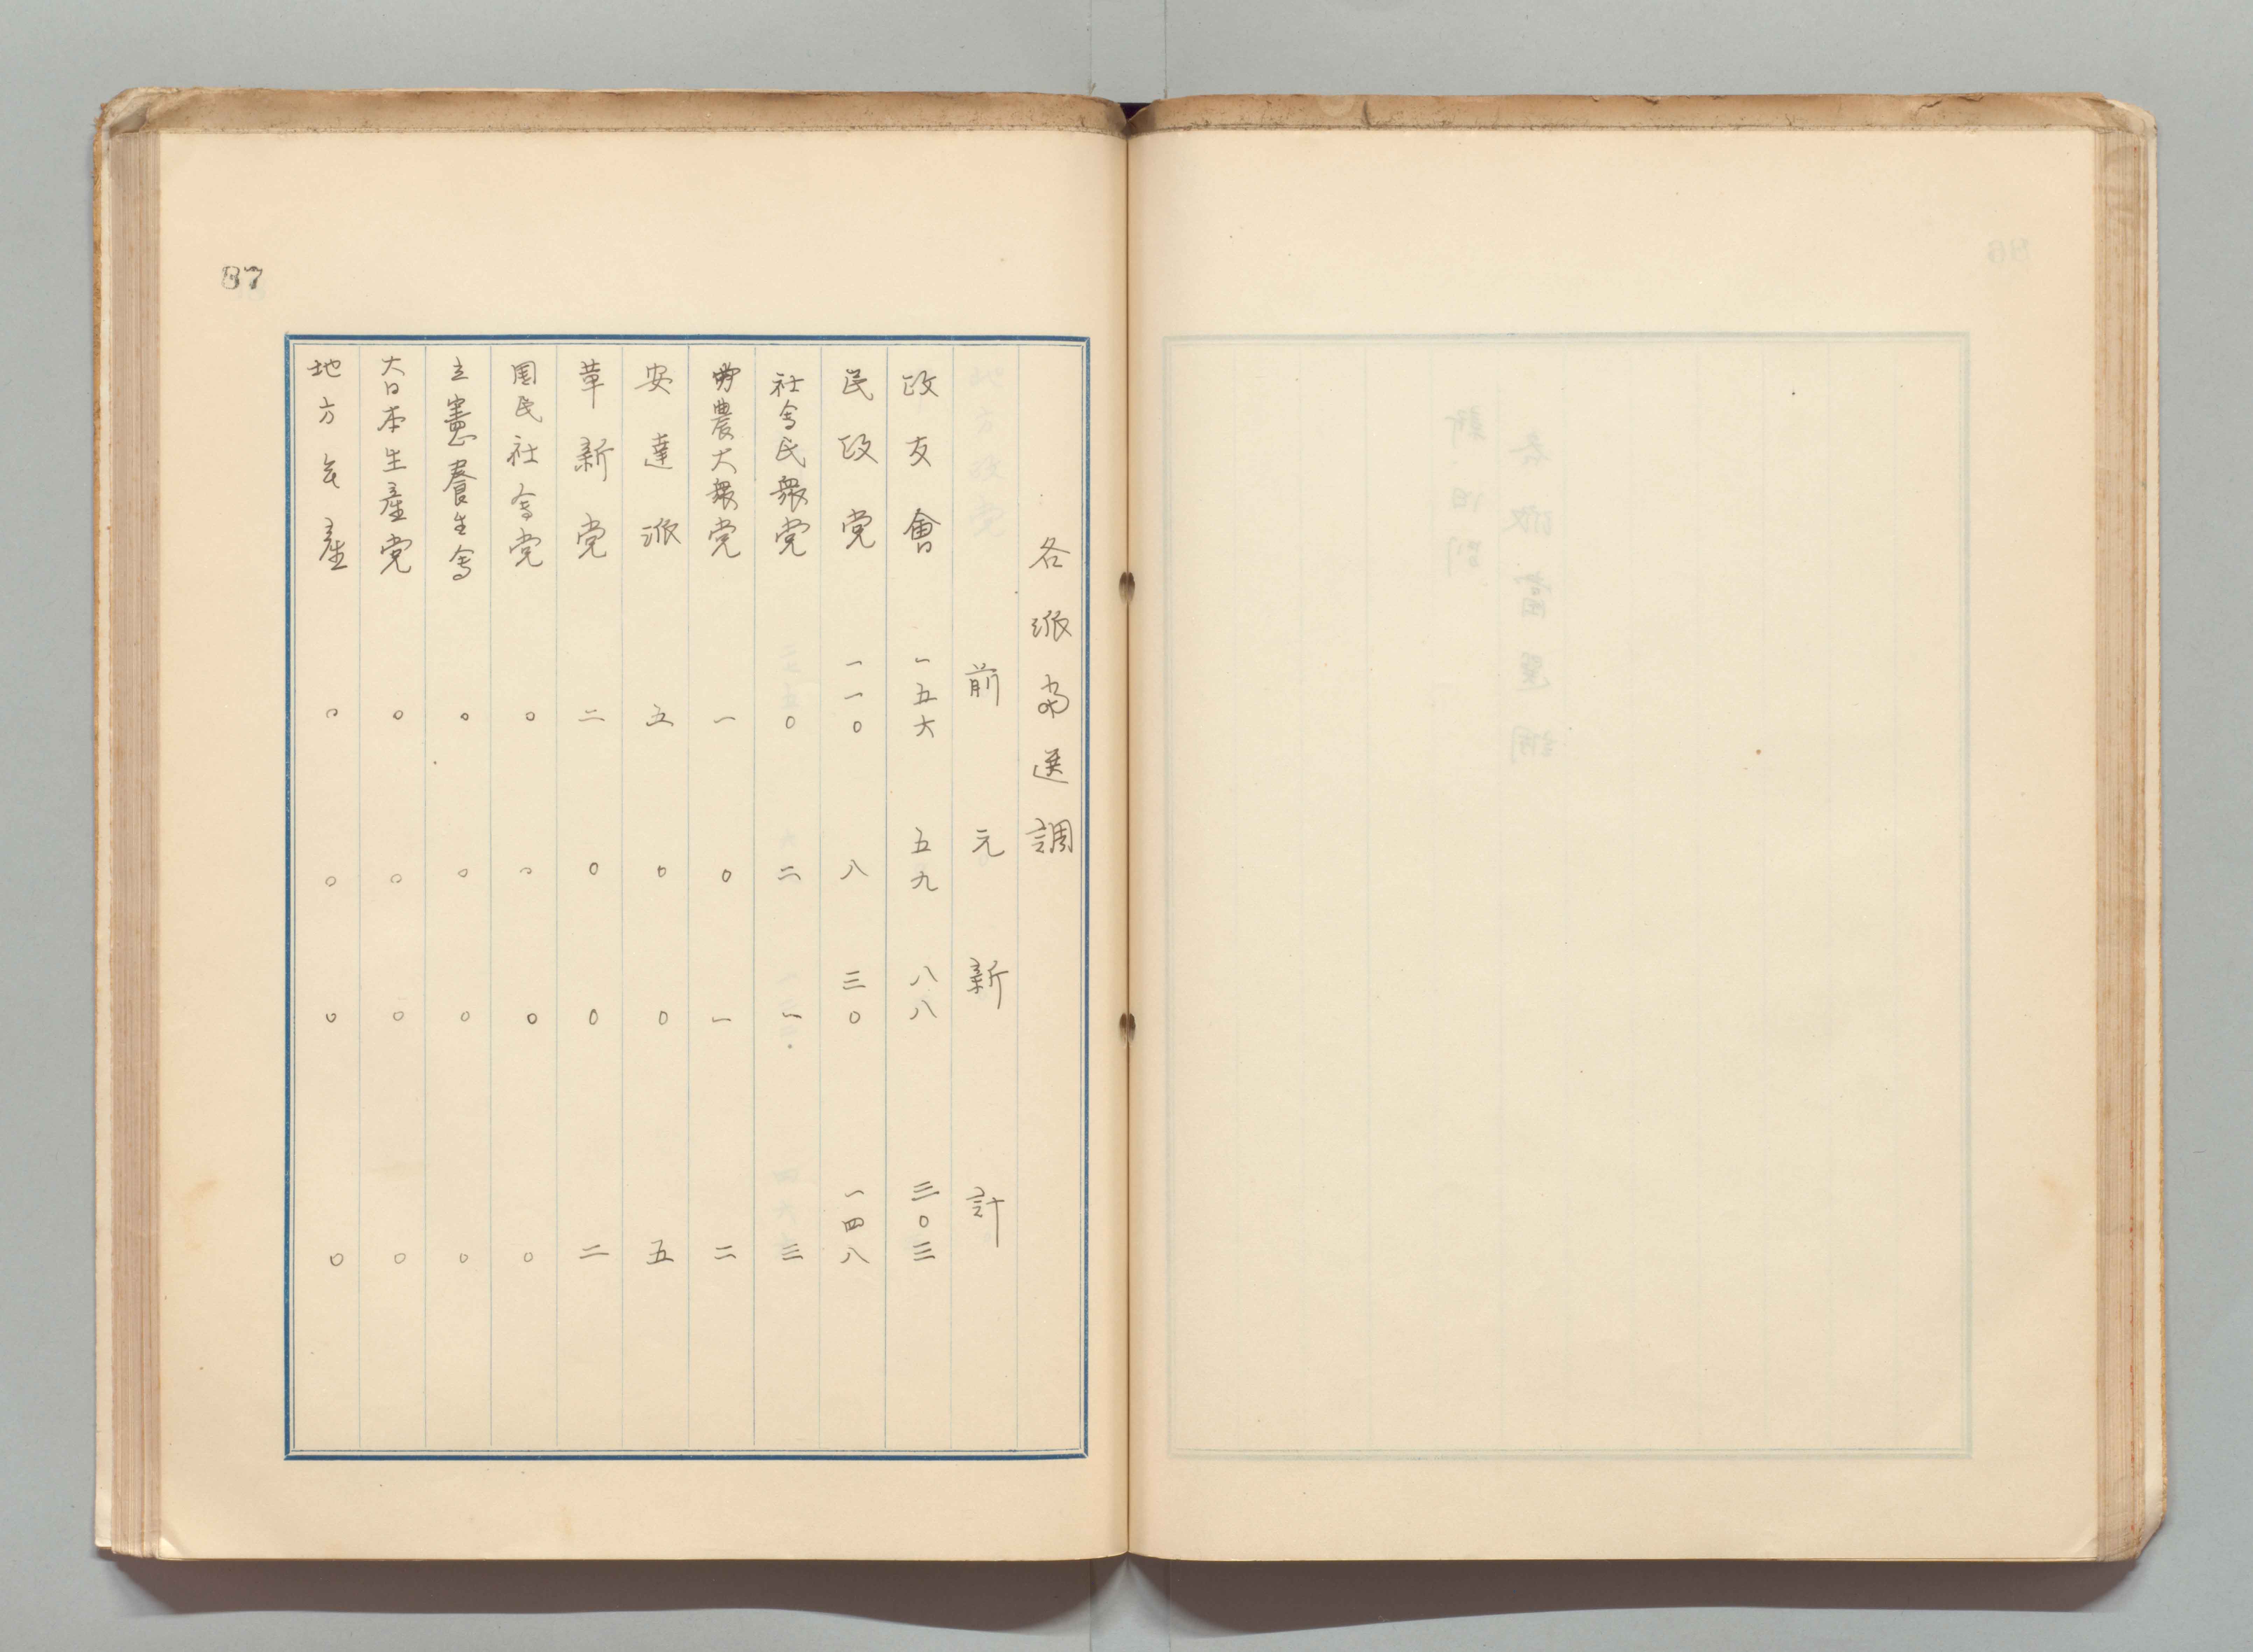 87
各派当選調
前 元 新 計
政友會 一五六 五九 八八 三〇三
民政党 一一〇 八 三〇 一四八
社会民衆党 〇 二 一 三
労農大衆党 一 〇 一 二
安達派 五 〇 〇 五
革新党 二 〇 〇 二
国民社会党 〇 〇 〇 〇
立憲養生会 〇 〇 〇 〇
大日本生産党 〇 〇 〇 〇
地方 産 〇 〇 〇 〇